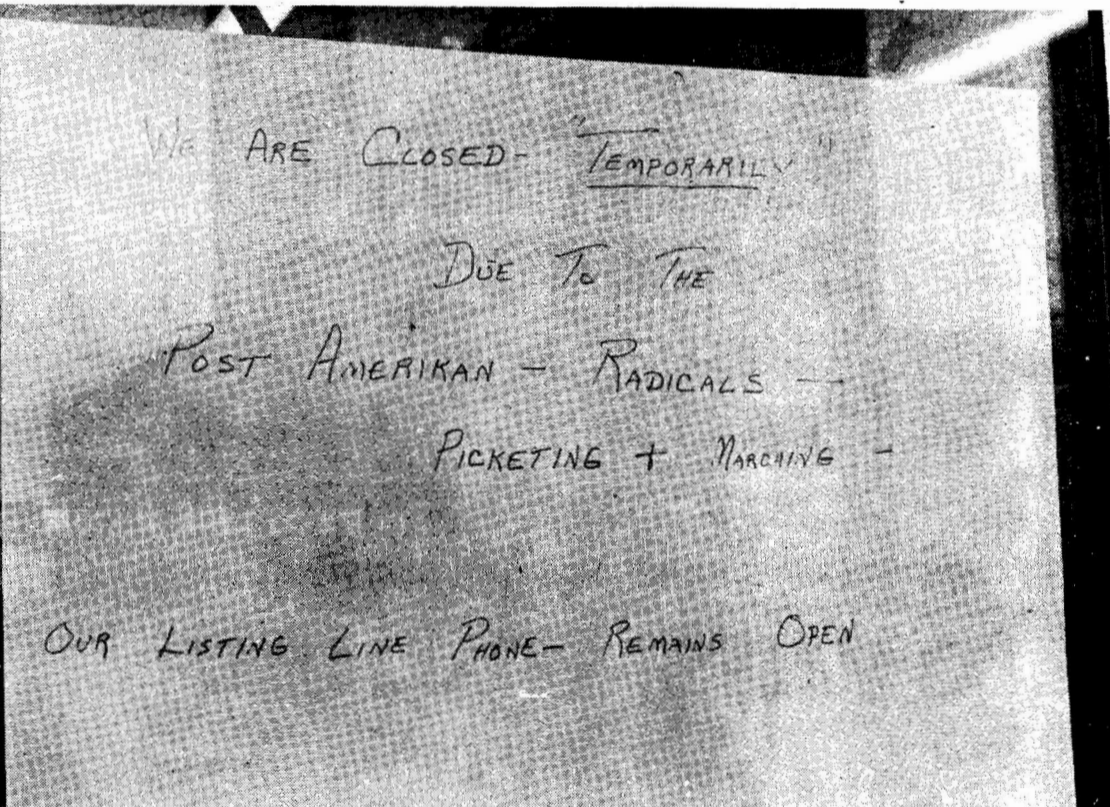 We ARE CLOSED- "TEMPORARILY"
DUE TO THE
POST AMERIKAN - RADICALS --
PICKETING + MARCHING -
OUR LISTING LINE PHONE- REMAINS OPEN